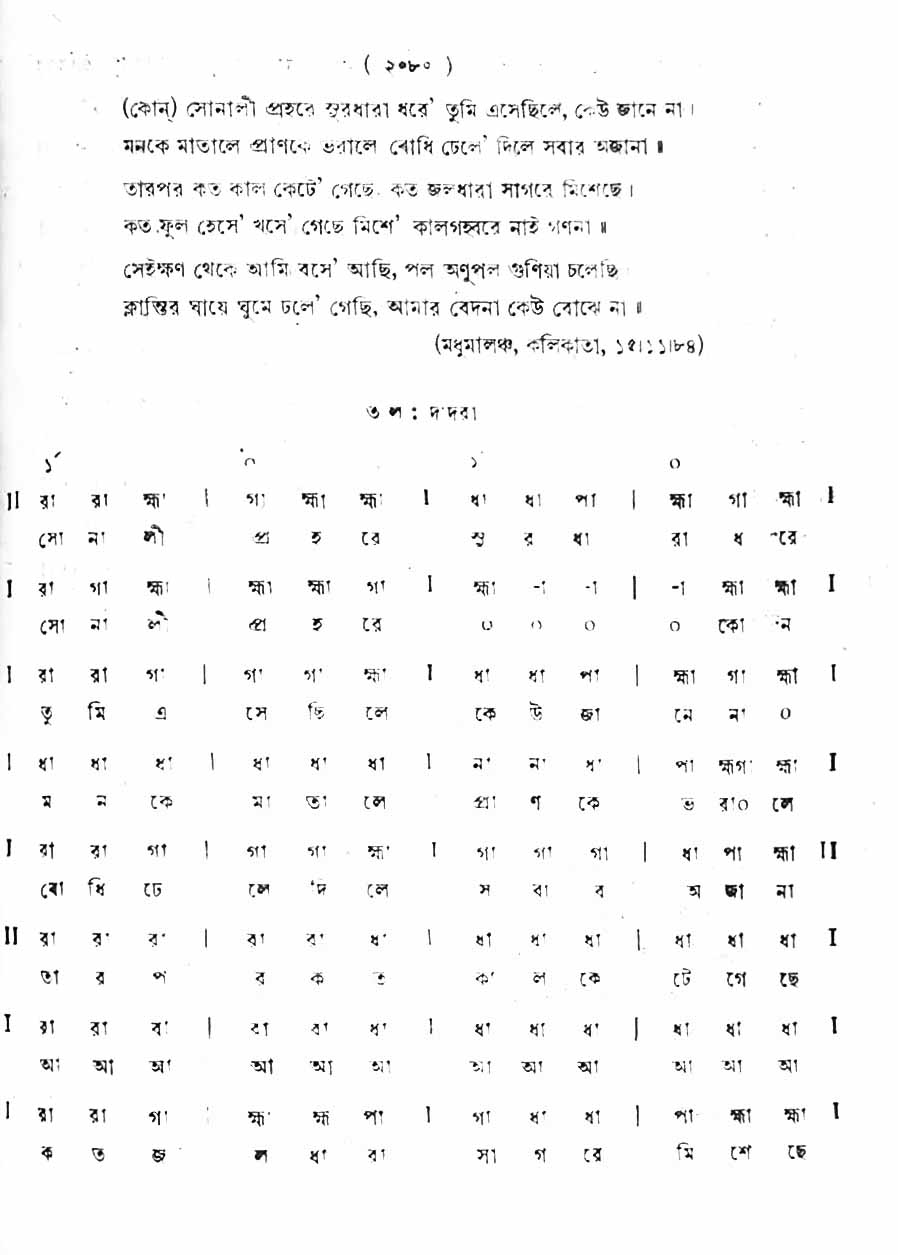 ( ২০৮০ )
(কোন্) সোনালী প্রহরে সুরধারা ধরে' তুমি এসেছিলে, কেউ জানে না ।
মনকে মাতালে প্রাণকে ভরালে ৰোধি ঢেলে' দিলে সবার অজানা ॥
তারপর কত কাল কেটে' গেছে. কত জলধারা সাগরে মিশেছে ।
কত ফুল হেসে' খসে' গেছে মিশে' কালগহ্বরে নাই গণনা ॥
সেইক্ষণ থেকে আমি বসে' আছি, পল অণুপল গুণিয়া চলেছি
ক্লান্তির ঘায়ে ঘুমে ঢলে' গেছি, আমার বেদনা কেউ বোঝে না ॥
(মধুমালঞ্চ, কলিকাতা, ১৫।১১।৮৪)
তাল : দাদরা
১´ ০ ১ ০
II রা রা হ্মা | গা হ্মা হ্মা I ধা ধা পা | হ্মা গা হ্মা I
সো না লী প্র হ রে সু র ধা রা ধ রে
I রা গা হ্মা | হ্মা হ্মা গা I হ্মা -া -া | -া হ্মা হ্মা I
সো না লী প্র হ রে ০ ০ ০ ০ কো ন
I রা রা গা | গা গা হ্মা I ধা ধা পা | হ্মা গা হ্মা I
তু মি এ সে ছি লে কে উ জা নে না ০
I ধা ধা ধা | ধা ধা ধা I না না ধা | পা হ্মগা হ্মা I
ম ন কে মা তা লে প্রা ণ কে ভ রা০ লে
I রা রা গা | গা গা হ্মা I গা গা গা | ধা পা হ্মা II
ৰো ধি ঢে লে দি লে স বা র অ জা না
II রা রা রা | রা রা ধা I ধা ধা ধা | ধা ধা ধা I
তা র প র ক ত কা ল কে টে গে ছে
I রা রা রা | রা রা ধা I ধা ধা ধা | ধা ধা ধা I
আ আ আ আ আ আ আ আ আ আ আ আ
I রা রা গা | হ্মা হ্ম পা I গা ধা ধা | পা হ্মা হ্মা I
ক ত জ ল ধা রা সা গ রে মি শে ছে